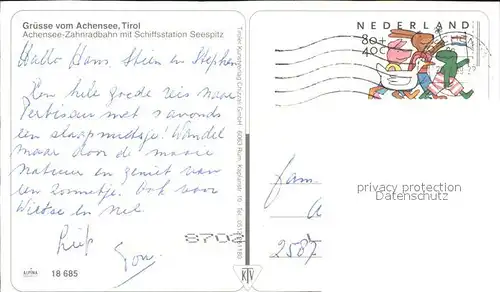 Grüsse vom Achensee, Tirol
Achensee-Zahnradbahn mit Schiffsstation Seespitz
Hallo Hans, Stien en Stephen
Een hele goede reis naar
Pertisau met s'avonds
een slaapmutsje! Wandel
maar door de mooie
natuur en geniet van
een zonnetje. Ook voor
Wietse en
Liefs
8702
ALPINA
18 685
Tiroler Kunstverlag Chizzali GmbH · 6063 Rum, Kaplanstr. 16 · Tel.
KTV
NEDERLAND
80+
40c
fam.
2587
privacy protection
Datenschutz